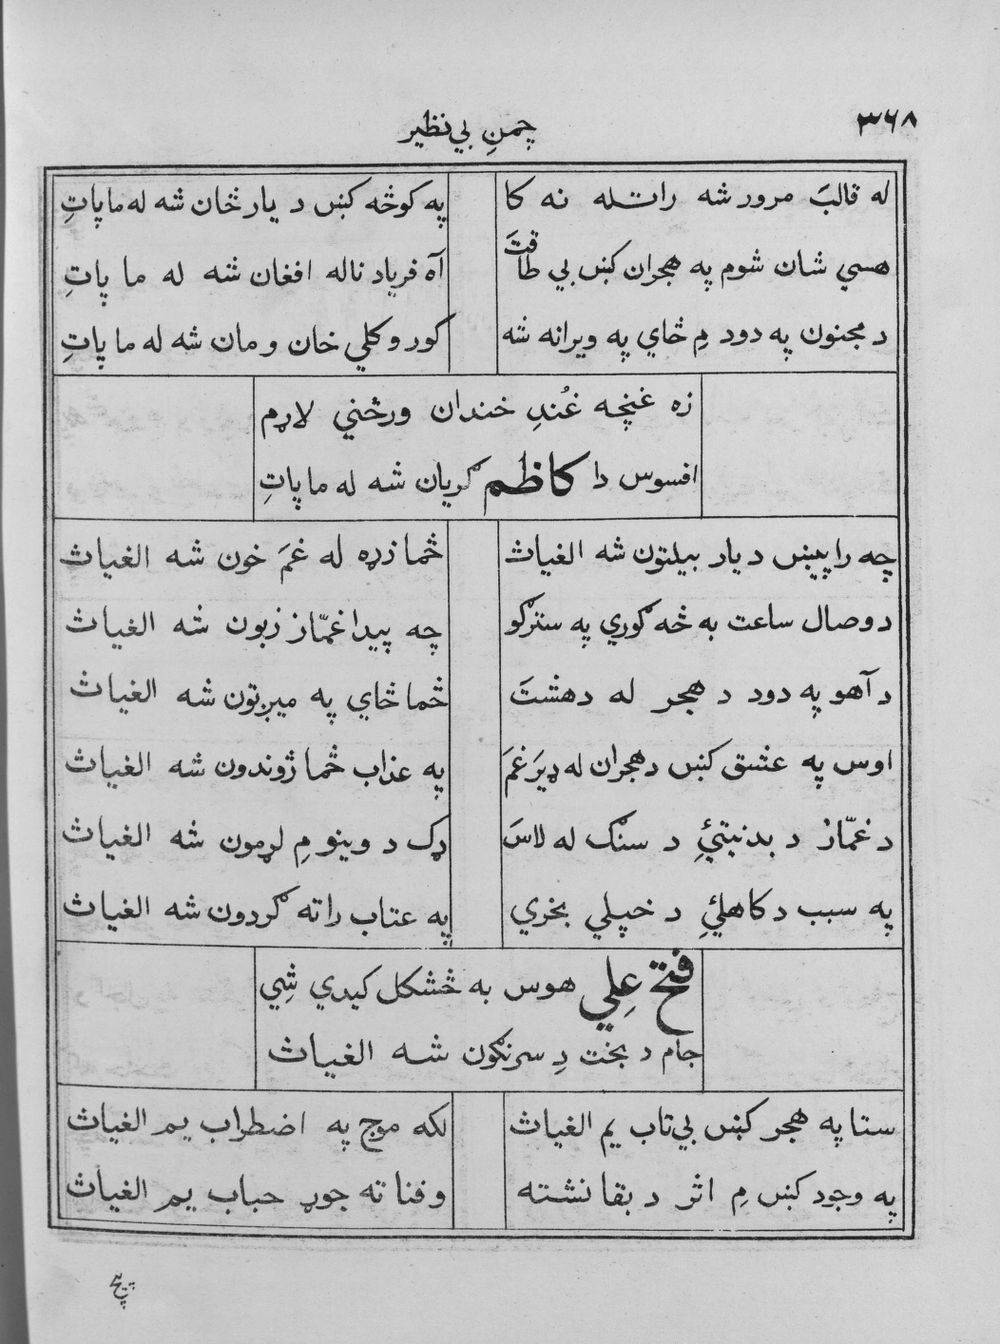 ۳۶۸
چمنِ بي نظير
له قالبَ مرور شه راتله نه کا
په کوڅه کښ د يار څان شه له ما پاتِ
هسي شان شوم په هجران کښ بي طاقتَ
آه فرياد ناله افغان شه له ما پاتِ
د مجنون په دود مِ څاي په ويرانه شه
کور و کلي خان و مان شه له ما پاتِ
زه غنچه غُندِ خندان ورڅني لاړم
افسوس دا کاظم ګريان شه له ما پاتِ
چه را پيښ د يار بيلتون شه الغياث
څما زړه له غمَ خون شه الغياث
د وصال ساعت به څه ګوري په سترګو
چه پيدا غمّاز زبون شه الغياث
د آهو په دود د هجر له دهشتَ
څما څاي په ميرتون شه الغياث
اوس په عشق کښ د هجران له ډيرَ غمَ
په عذاب څما ژوندون شه الغياث
د غمّاز د بدنيتئِ د سنګ له لاسَ
ډک د وينو مِ لړمون شه الغياث
په سبب د کاهلئِ د خپلي بخري
په عتاب راته ګردون شه الغياث
فتح عِلي هوس به څشکل کيدي شِي
جام د بخت دِ سرنګون شه الغياث
ستا په هجر کښ بي تاب يم الغياث
لکه موج په اضطراب يم الغياث
په وجود کښ مِ اثر د بقا نشته
و فنا ته جوړ حباب يم الغياث